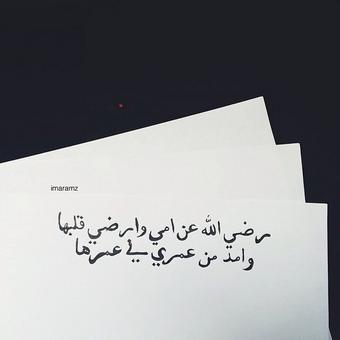 imaramz
رضي الله عن امي وارضي قلبها
وامد من عمري في عمرها